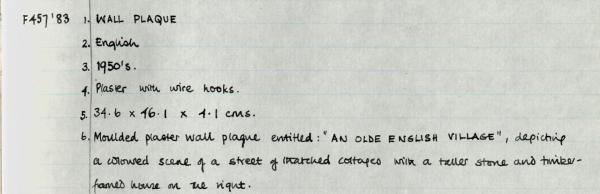 F457'83 1. WALL PLAQUE
2. English
3. 1950's.
4. Plaster with wire hooks.
5. 34.6 x 46.1 x 4.1 cms.
6. Moulded plaster wall plaque entitled: "AN OLDE ENGLISH VILLAGE", depicting
a coloured scene of a street of thatched cottages with a taller stone and timber-
famed house on the right.